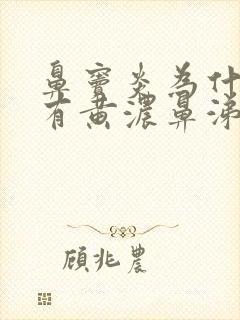 鼻窦炎为什
有黄浓鼻涕
顾兆农